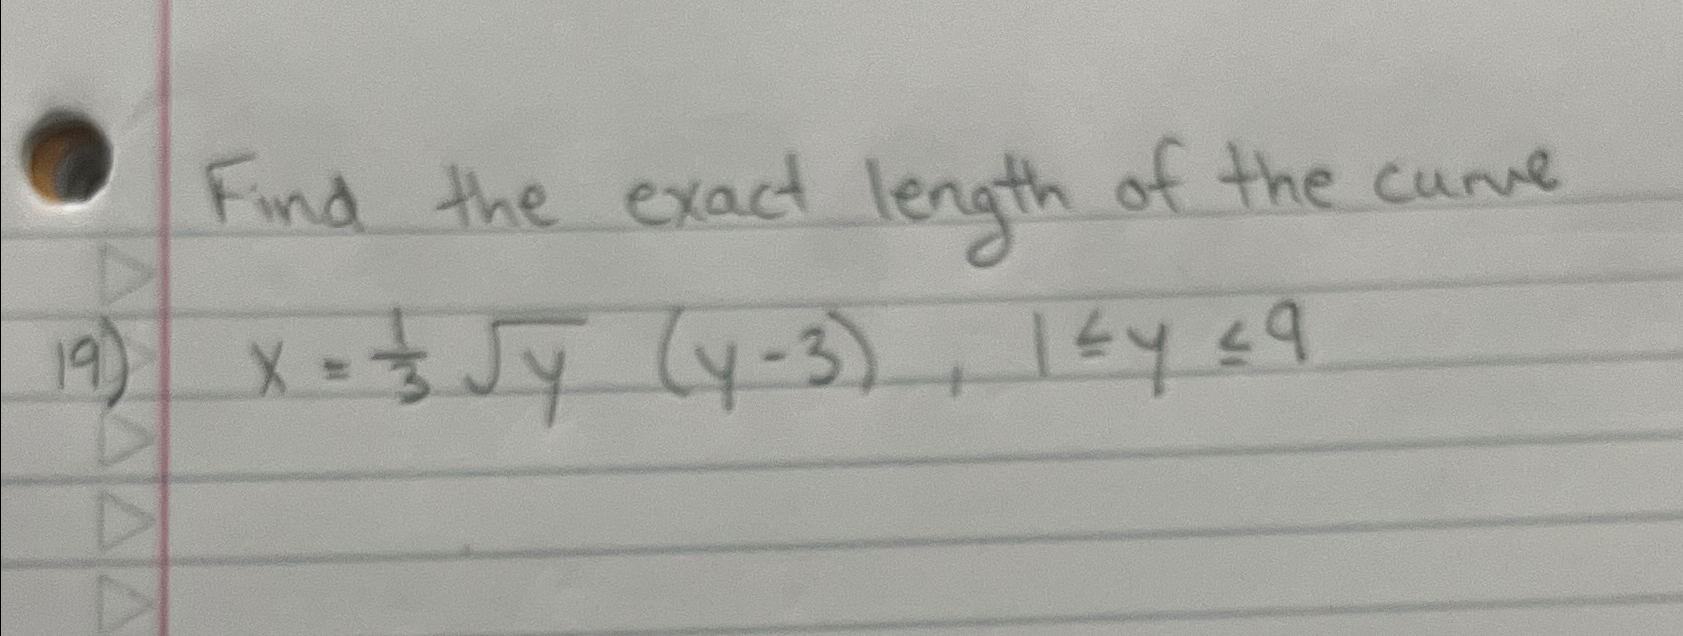 Find the exact length of the curve
19) x = 1/3 √y (y-3) , 1 ≤ y ≤ 9